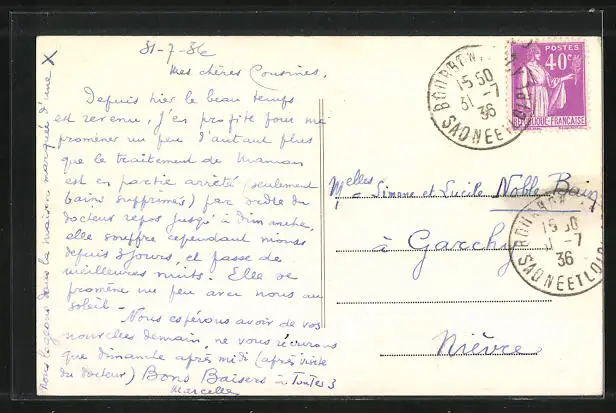 31-7-36
Mes chères Cousines,
Depuis hier le beau temps
est revenu, j'en profite pour me
promener un peu d'autant plus
que le traitement de Maman
est en partie arrêté (seulement
bains supprimés) par ordre du
docteur repos jusqu'à dimanche,
elle souffre cependant moins
depuis 2 jours, et passe de
meilleures nuits. Elle se
promène un peu avec nous au
soleil - Nous espérons avoir de vos
nouvelles demain, ne vous écrirons
que dimanche après midi (après visite
du docteur) Bons Baisers à Toutes 3
Marcelle
Nous logeons dans la maison marquée d'une X
Melles Simone et Lucile Noble
à Garchy
Nièvre
POSTES
40c
REPUBLIQUE FRANÇAISE
BOURBON
15 50
31 -7
36
SAONE ET LOIRE
BOURBON
15 50
31 -7
36
SAONE ET LOIRE